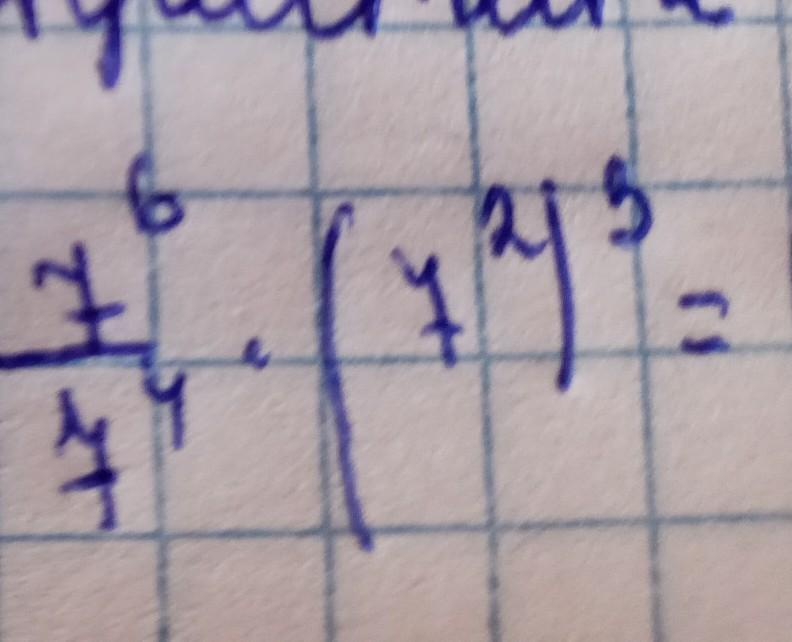 7⁶/7⁴ · (7²)³ =